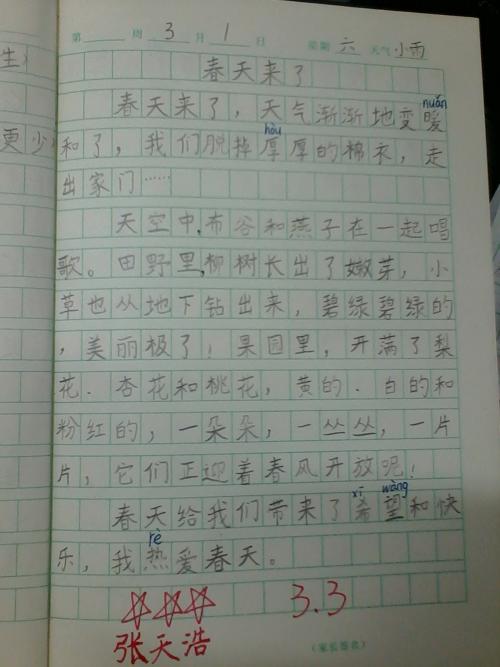 第 周 3 月 1 日 星期 六 天气 小雨
春天来了
nuǎn
春天来了，天气渐渐地变暖
hòu
和了，我们脱掉厚厚的棉衣，走
出家门……
天空中，布谷和燕子在一起唱
歌。田野里，柳树长出了嫩芽，小
草也从地下钻出来，碧绿碧绿的
，美丽极了！果园里，开满了梨
花．杏花和桃花，黄的．白的和
粉红的，一朵朵，一丛丛，一片
片，它们正迎着春风开放呢！
xī wàng
春天给我们带来了希望和快
rè
乐，我热爱春天。
3.3
张天浩
（家长签名）
生
更少